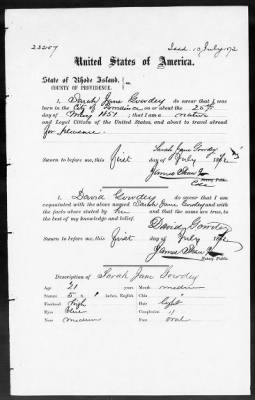 23207
Issd. 10 July 1872
United States of America.
State of Rhode Island,
COUNTY OF PROVIDENCE.
I, Sarah Jane Gowdey do swear that I was
born in the City of Providence on or about the 25th
day of 1851; that I am a native
and Legal Citizen of the United States, and about to travel abroad
for pleasure.
Sarah Jane Gowdey
Sworn to before me, this first day of July 1872
Notary Public.
I, David Gowdey do swear that I am
acquainted with the above named Sarah Jane Gowdey and with
the facts above stated by her and that the same are true, to
the best of my knowledge and belief.
David Gowdey
Sworn to before me, this first day of July 1872
Notary Public.
Description of Sarah Jane Gowdey
Age 21 years Mouth medium
Stature 5 ft inches, English Chin
Forehead high Hair light
Eyes blue Complexion
Nose medium Face oval